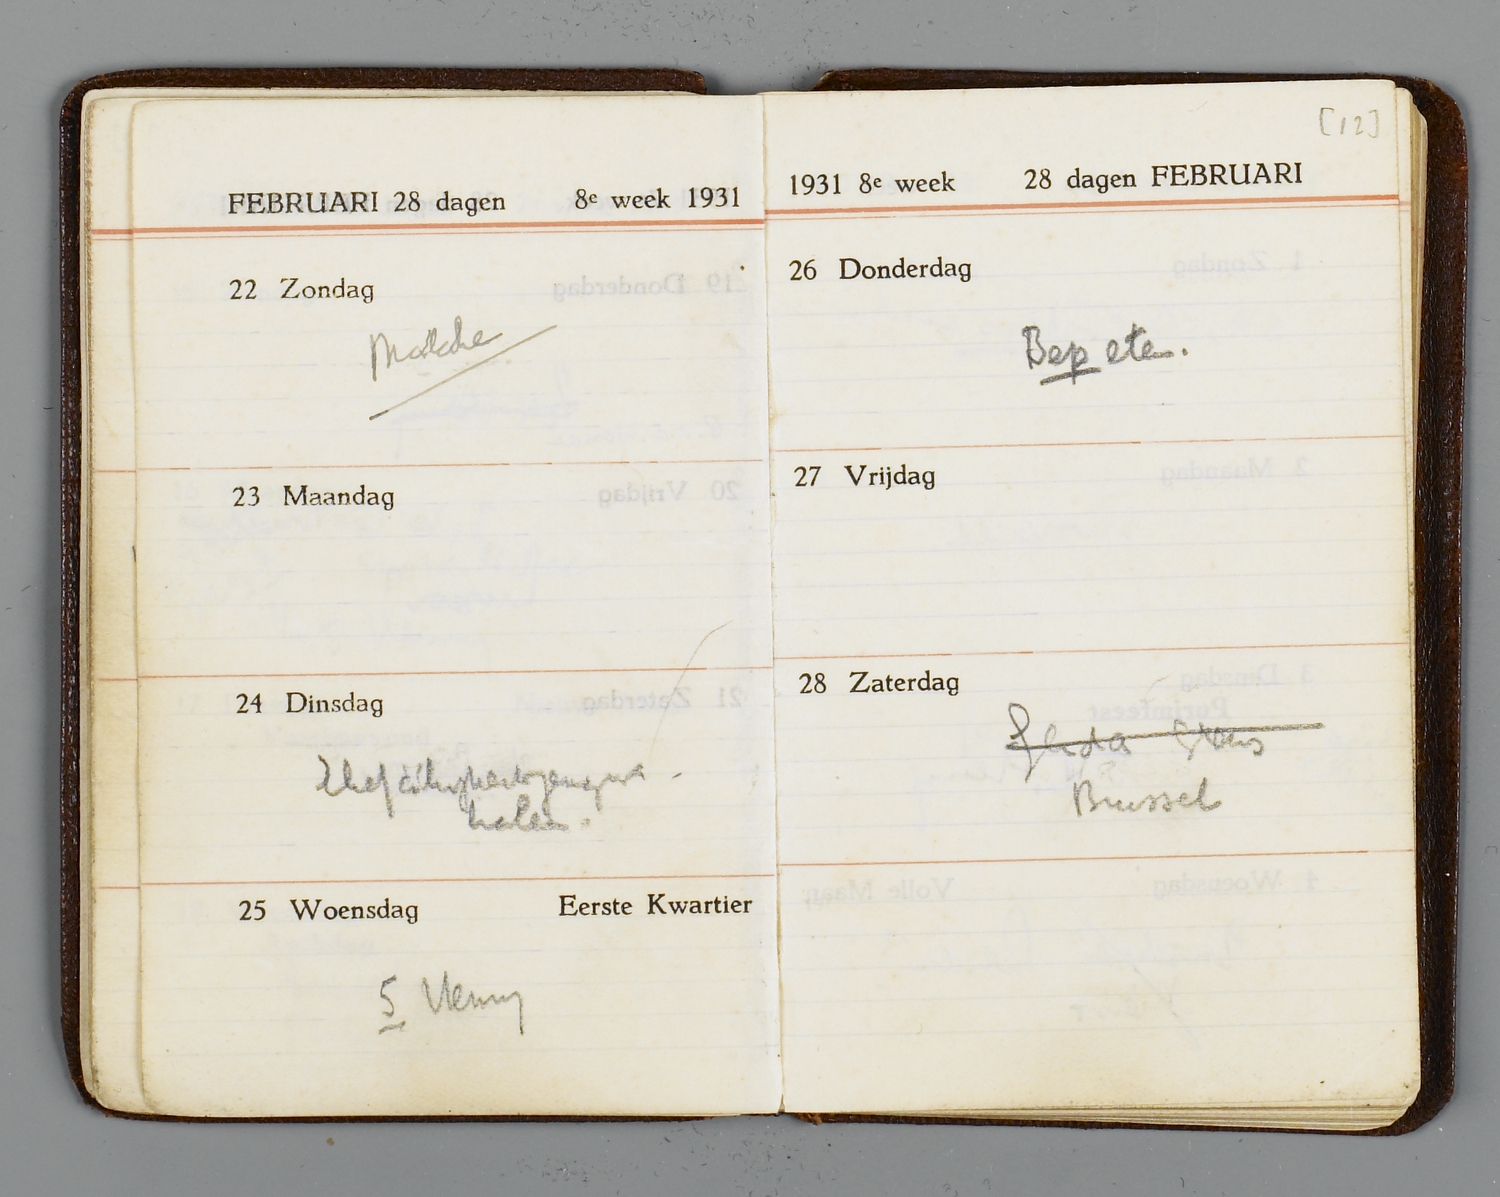 FEBRUARI 28 dagen 8e week 1931
22 Zondag
23 Maandag
24 Dinsdag
halen.
25 Woensdag Eerste Kwartier
5
[12]
1931 8e week 28 dagen FEBRUARI
26 Donderdag
Bep eten.
27 Vrijdag
28 Zaterdag
Brussel